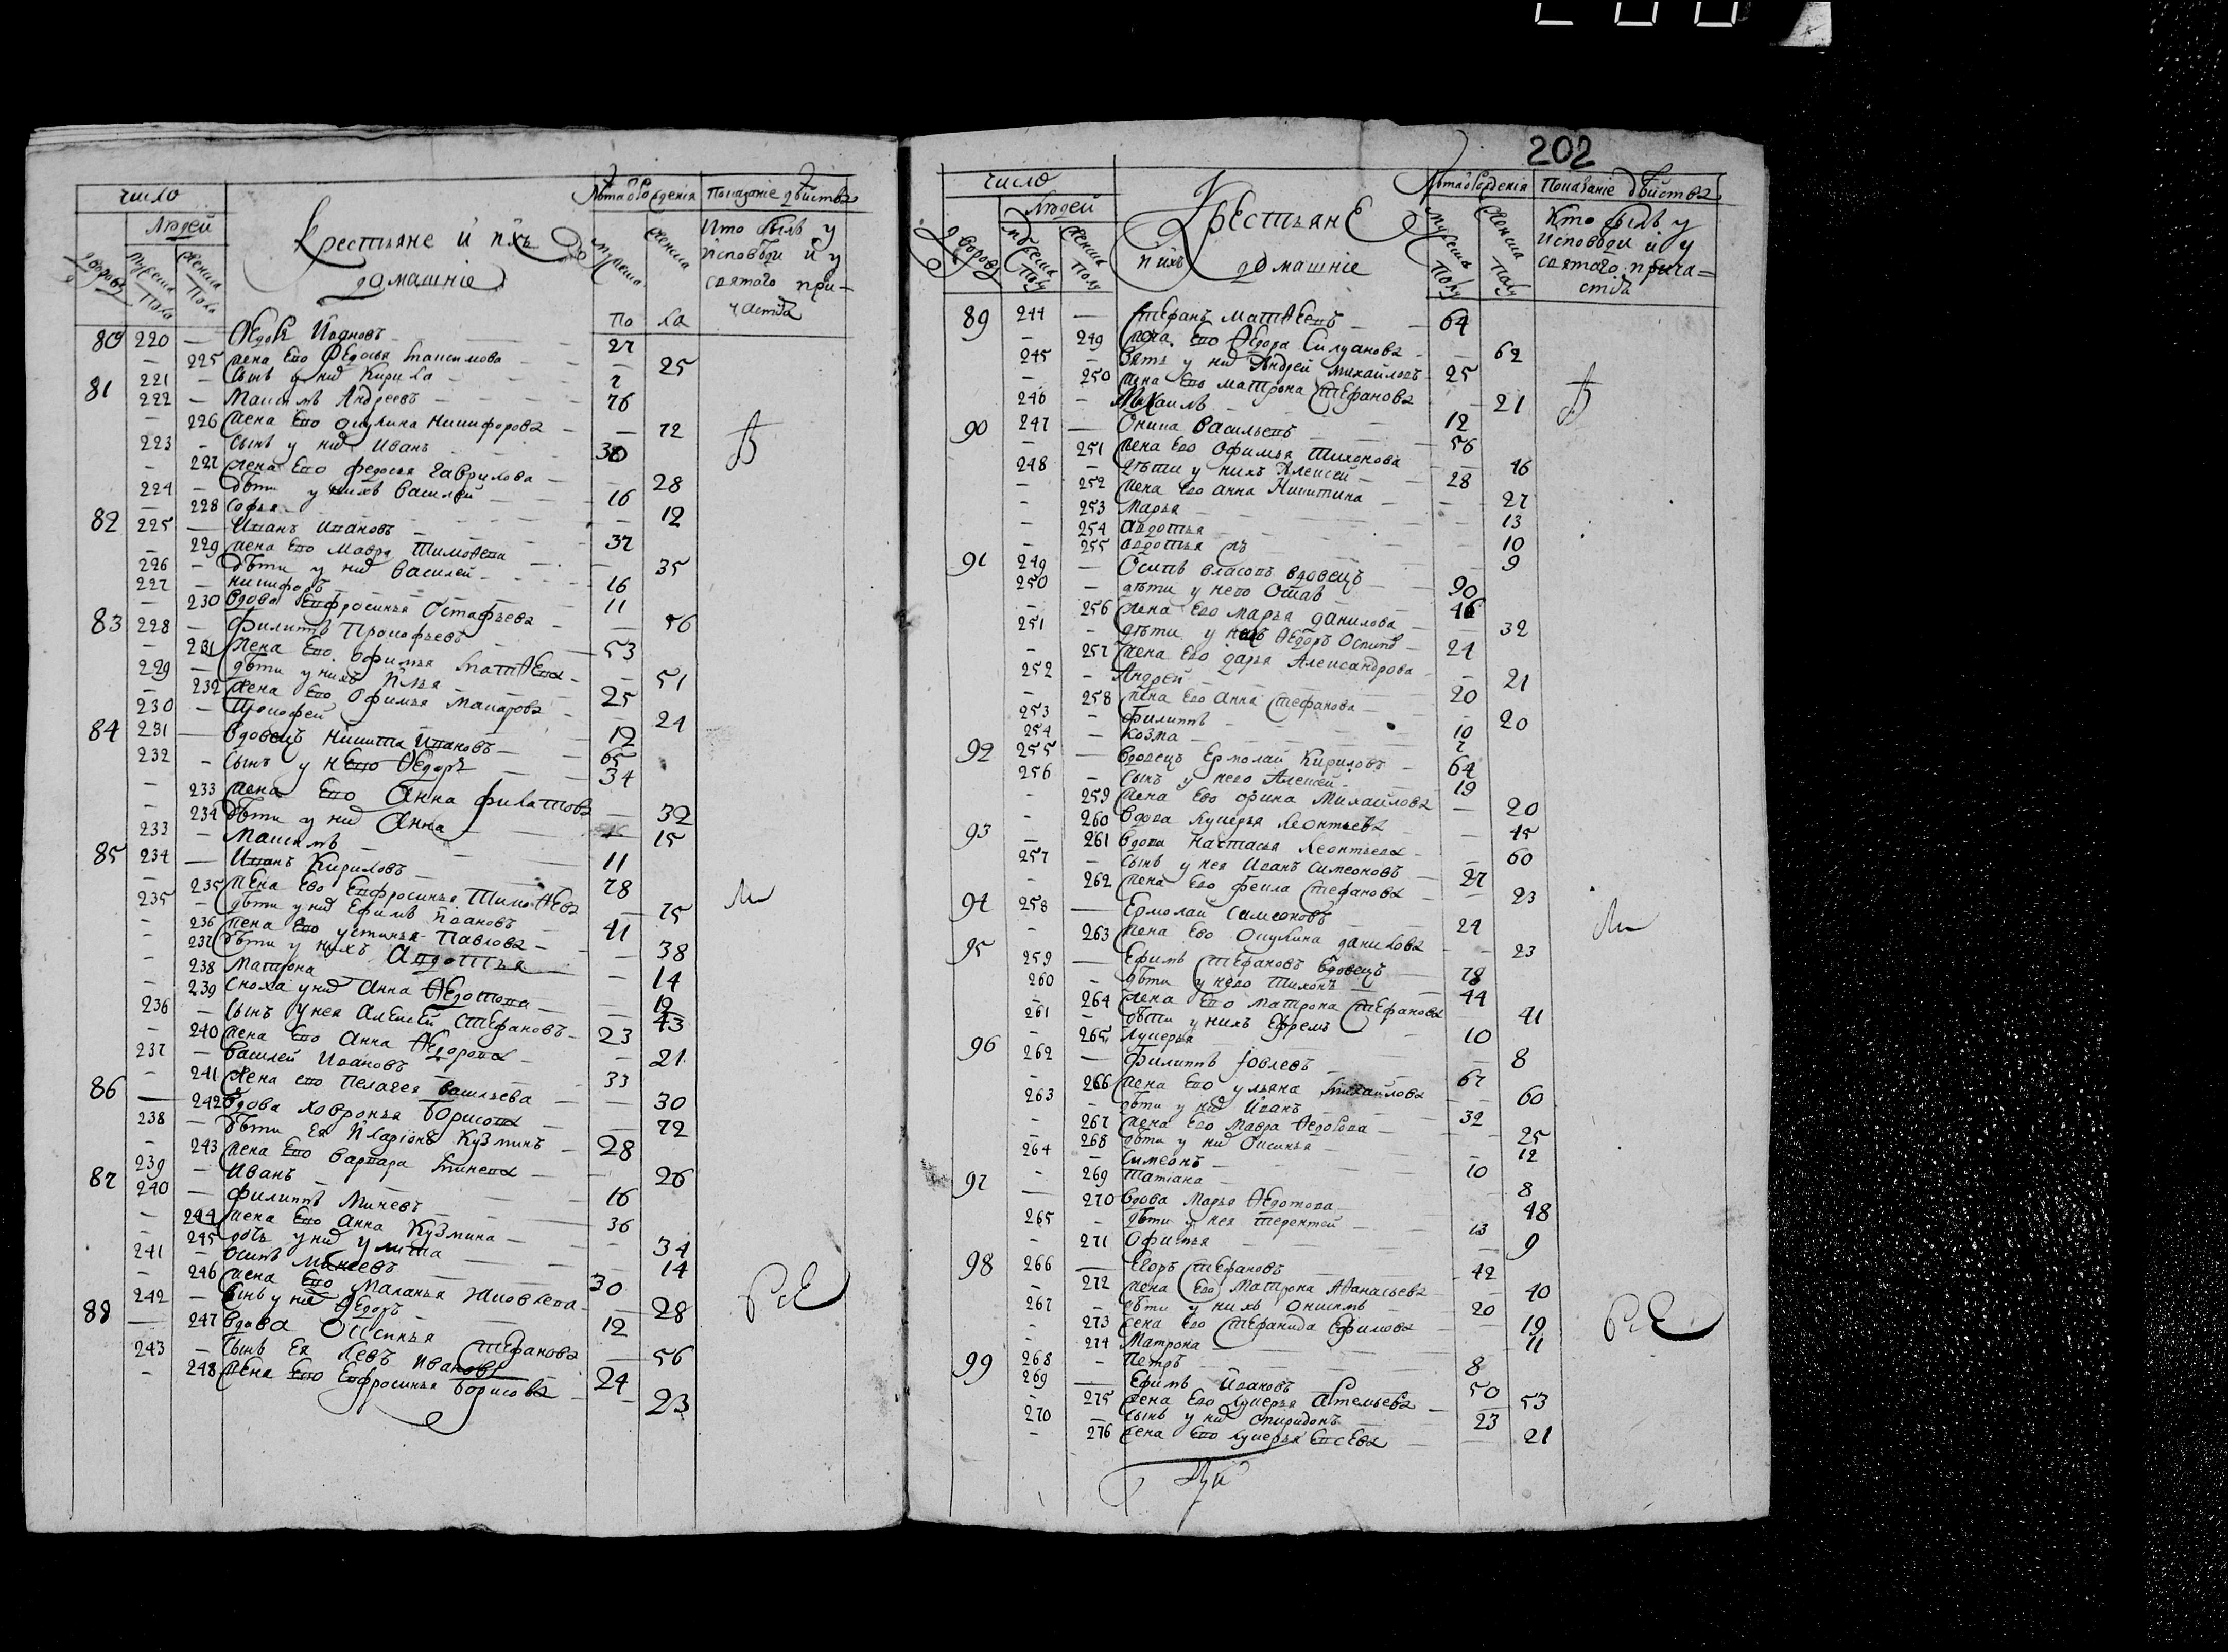 число
Людей
дворовъ
мужеска пола
женска пола
Крестьяне и ихъ
домашніе
Лѣта отъ рожденія
мужеска
женска
по ла
Показаніе дѣйства
Кто былъ у
исповѣди и у
святаго при-
частія
80 220 — Ѳедоръ Ивановъ 27
— 225 жена Ево Федосья Максимова — 25
221 — сынъ у них Кирила 2
81 222 — Максимъ Андреевъ 76
— 226 жена Ево Окулина Никифорова — 72
223 — сынъ у них Иванъ 30
— 227 жена Ево Федосья Гаврилова — 28
224 — дѣти у нихъ Василей 16
— 228 Софья — 12
82 225 — Иванъ Ивановъ 37
— 229 жена Ево Мавра Тимоѳева — 35
226 — дѣти у них Василей 16
227 — Никифоръ 11
— 230 вдова Евфросинья Остафьева — 56
83 228 — Филиппъ Прокофьевъ 53
— 231 жена Ево Офимья Матѳева — 51
229 — дѣти у нихъ Илья 25
— 232 жена Ево Офимья Макарова — 24
230 — Прокофей 12
84 231 — вдовецъ Никита Ивановъ 65
232 — сынъ у нево Ѳедоръ 34
— 233 жена Ево Анна Филатова — 32
— 234 дѣти у них Анна — 15
233 — Максимъ 11
85 234 — Иванъ Кириловъ 78
— 235 жена Ево Евфросинья Тимоѳева — 75
235 — дѣти у них Ефимъ Ивановъ 41
— 236 жена Ево Устинья Павлова — 38
— 237 дѣти у нихъ Авдотья — 14
— 238 Матрона — 12
— 239 сноха у них Анна Ѳедотова — 43
236 — сынъ у нея Алексей Стефановъ 23
— 240 жена Ево Анна Ѳедорова — 21
237 — Василей Ивановъ 33
— 241 жена ево Пелагея Васильева — 30
86 — 242 вдова Ховронья Борисова — 72
238 — дѣти Ея Иларіонъ Кузминъ 28
— 243 жена Ево Варвара Минева — 26
239 — Иванъ 16
87 240 — Филиппъ Миневъ 36
— 244 жена Ево Анна Кузмина — 34
— 245 дочь у них Улита — 14
241 — Осипъ Минеевъ 30
— 246 жена Ево Маланья Яковлева — 28
242 — сынъ у них Ѳедоръ 12
88 — 247 вдова Оксинья Стефанова — 56
243 — сынъ Ея Левъ Ивановъ 24
— 248 жена Ево Евфросинья Борисова — 23
В
Ли
РсЕ
202
число
Людей
дворовъ
мужеска полу
женска полу
Крестьяне
и ихъ домашніе
Лѣта отъ рожденія
мужеска полу
женска полу
Показаніе дѣйства
Кто былъ у
исповѣди и у
святаго прича=
стія
89 244 — Стефанъ Матѳевъ 64
— 249 жена Ево Ѳедора Силуанова — 62
245 — зять у них Андрей Михайловъ 25
— 250 жена Ево Матрона Стефанова — 21
246 — Михаилъ 12
90 247 — Оника Васильевъ 56
— 251 жена Ево Офимья Тихонова — 46
248 — дѣти у нихъ Алексей 28
— 252 жена Ево Анна Никитина — 27
— 253 Марья — 13
— 254 Авдотья — 10
— 255 Авдотья ж — 9
91 249 — Осипъ Власовъ вдовецъ 90
250 — дѣти у нево Осипъ 46
— 256 жена Ево Марья Данилова — 32
251 — дѣти у нихъ Ѳедоръ Осиповъ 24
— 257 жена Ево Дарья Александрова — 21
252 — Андрей 20
— 258 жена Ево Анна Стефанова — 20
253 — Филиппъ 10
254 — Козма 7
92 255 — вдовецъ Ермолай Кириловъ 64
256 — сынъ у нево Алексей 19
— 259 жена Ево Орина Михайлова — 20
— 260 вдова Лукерья Леонтьева — 45
93 — 261 вдова Настасья Леонтьева — 60
257 — сынъ у нея Иванъ Симеоновъ 27
— 262 жена Ево Фекла Стефанова — 23
94 258 — Ермолай Самсоновъ 24
— 263 жена Ево Окулина Данилова — 23
95 259 — Ефимъ Стефановъ вдовецъ 78
260 — дѣти у нево Тихонъ 44
— 264 жена Ево Матрона Стефанова — 41
261 — дѣти у нихъ Ефремъ 10
— 265 Лукерья — 8
96 262 — Филиппъ Іовлевъ 67
— 266 жена Ево Ульяна Михайлова — 60
263 — дѣти у них Иванъ 32
— 267 жена Ево Мавра Ѳедорова — 25
— 268 дѣти у них Оксинья — 12
264 — Симеонъ 10
— 269 Татіана — 8
97 — 270 вдова Марья Ѳедотова — 48
265 — дѣти у нея Терентей 13
— 271 Офимья — 9
98 266 — Егоръ Стефановъ 42
— 272 жена Ево Матрона Аѳанасьева — 40
267 — дѣти у нихъ Онисимъ 20
— 273 жена Ево Стефанида Ефимова — 19
— 274 Матрона — 11
268 — Петръ 8
99 269 — Ефимъ Ивановъ 50
— 275 жена Ево Лукерья Артемьева — 53
270 — сынъ у них Спиридонъ 23
— 276 жена Ево Лукерья Евсева — 21
В
Ли
РсЕ